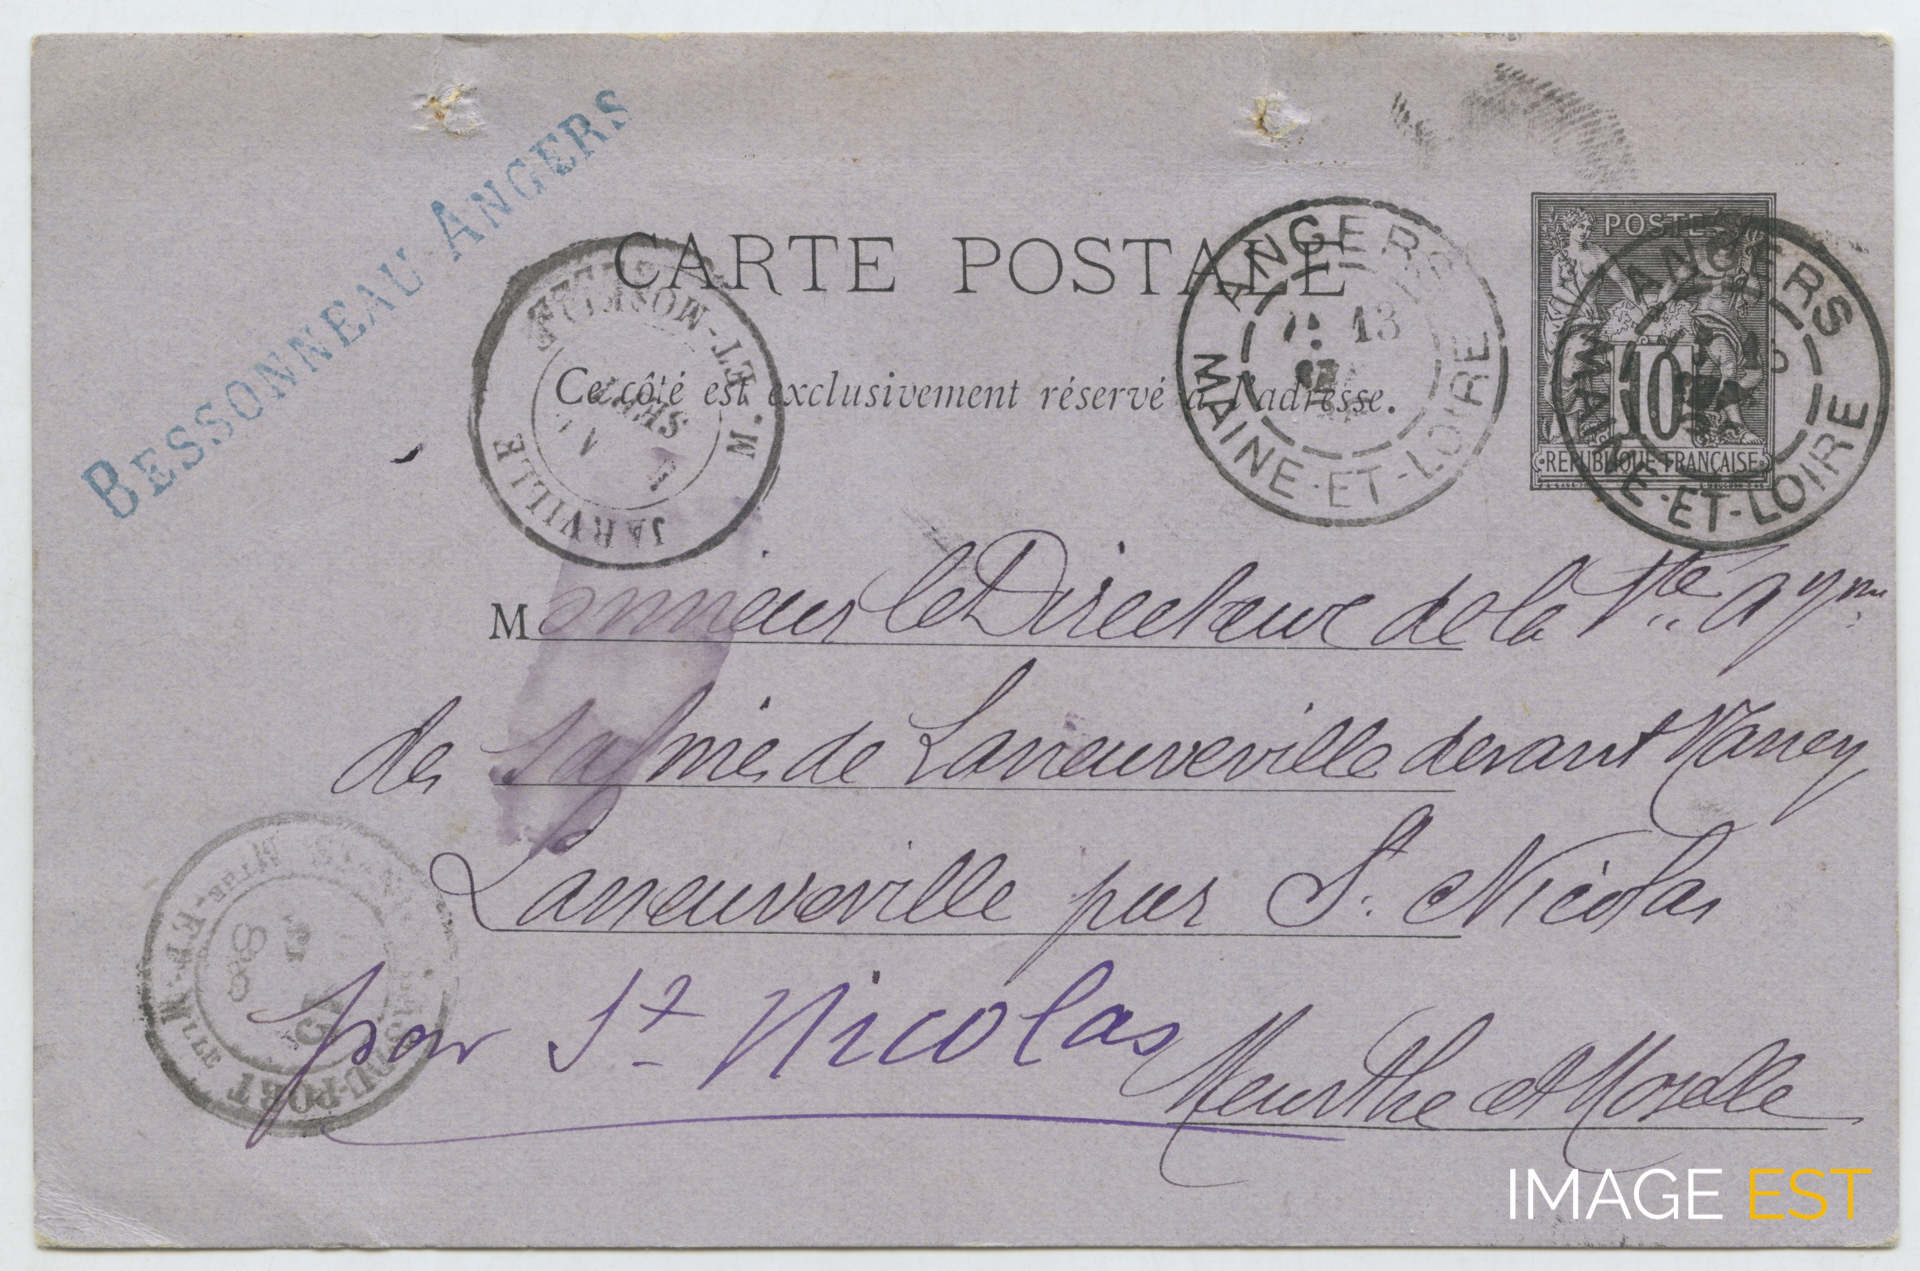 BESSONNEAU ANGERS
CARTE POSTALE
Ce côté est exclusivement réservé à l'adresse.
POSTES
10
REPUBLIQUE FRANÇAISE
ANGERS
13
MAINE-ET-LOIRE
ANGERS
MAINE-ET-LOIRE
JARVILLE
M.ET-MOSELLE
Monsieur le Directeur de la Sté ayme
des Salines de Laneuveville devant Nancy
Laneuveville par St. Nicolas
par St Nicolas
Meurthe et Moselle
DU-PORT
15
88
IMAGE EST